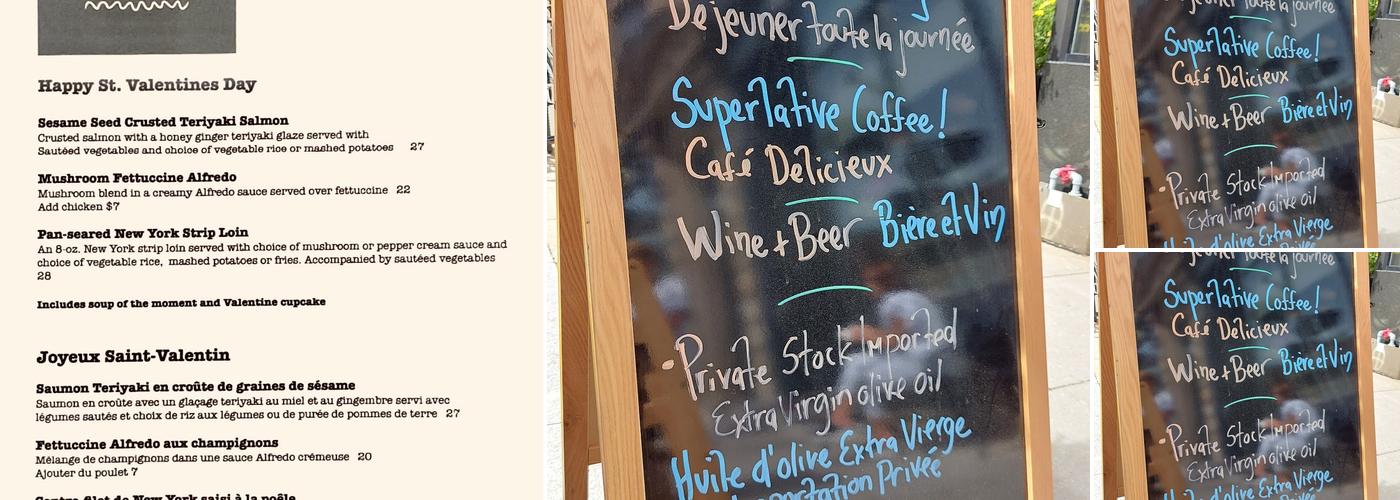 Happy St. Valentines Day
Sesame Seed Crusted Teriyaki Salmon
Crusted salmon with a honey ginger teriyaki glaze served with
Sautéed vegetables and choice of vegetable rice or mashed potatoes 27
Mushroom Fettuccine Alfredo
Mushroom blend in a creamy Alfredo sauce served over fettuccine 22
Add chicken $7
Pan-seared New York Strip Loin
An 8-oz. New York strip loin served with choice of mushroom or pepper cream sauce and
choice of vegetable rice, mashed potatoes or fries. Accompanied by sautéed vegetables
28
Includes soup of the moment and Valentine cupcake
Joyeux Saint-Valentin
Saumon Teriyaki en croûte de graines de sésame
Saumon en croûte avec un glaçage teriyaki au miel et au gingembre servi avec
légumes sautés et choix de riz aux légumes ou de purée de pommes de terre 27
Fettuccine Alfredo aux champignons
Mélange de champignons dans une sauce Alfredo crémeuse 20
Ajouter du poulet 7
Contre filet de New York saisi à la poêle
Dejeuner toute la journée
Superlative Coffee!
Café Délicieux
Wine + Beer Bière et Vin
- Private Stock Imported
Extra Virgin olive oil
Huile d'olive Extra Vierge
Importation Privée
toute la journée
Superlative Coffee!
Café Délicieux
Wine + Beer Bière et Vin
- Private Stock Imported
Extra Virgin olive oil
Huile d'olive Extra Vierge
toute la journée
Superlative Coffee!
Café Délicieux
Wine + Beer Bière et Vin
- Private Stock Imported
Extra Virgin olive oil
Huile d'olive Extra Vierge